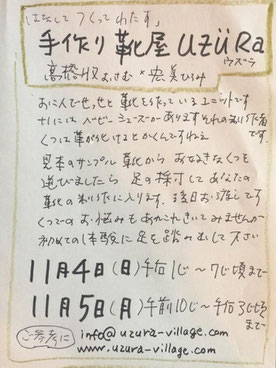 はなして つくってわたす」
手作り靴屋 uzüRa
ウズラ
高橋収 おさむ × 宏美 ひろみ
お二人でせっせと靴を作っているユニットです
にはベビーシューズがあります それの
です
見本のサンプル靴から お好きなくつを
選びましたら 足の採寸して あなたの
靴の 作りに入ります。後日お渡しです
くつでのお悩みも きいてみませんか
初めての体験に足を踏み出して下さい
11月4日(日)午后1じ〜7じ頃まで
11月5日(月)午前10じ〜午后3じ頃
まで
ご参考に
info@uzura-village.com
www.uzura-village.com